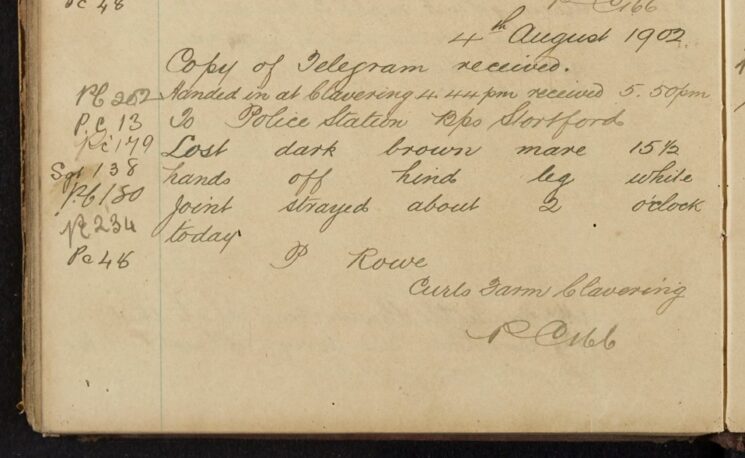 Pc 48
P C 166
4th August 1902
Copy of Telegram received.
Pc 262 Handed in at Clavering 4.44pm received 5.50pm
P.C. 13 To Police Station Bps Stortford
Pc 179 Lost dark brown mare 15½
Sgt 138 hands off hind leg white
Pc 180 joint strayed about 2 o'clock
Pc 234 today
Pc 48 P Rowe
Curls Farm Clavering
P C 166